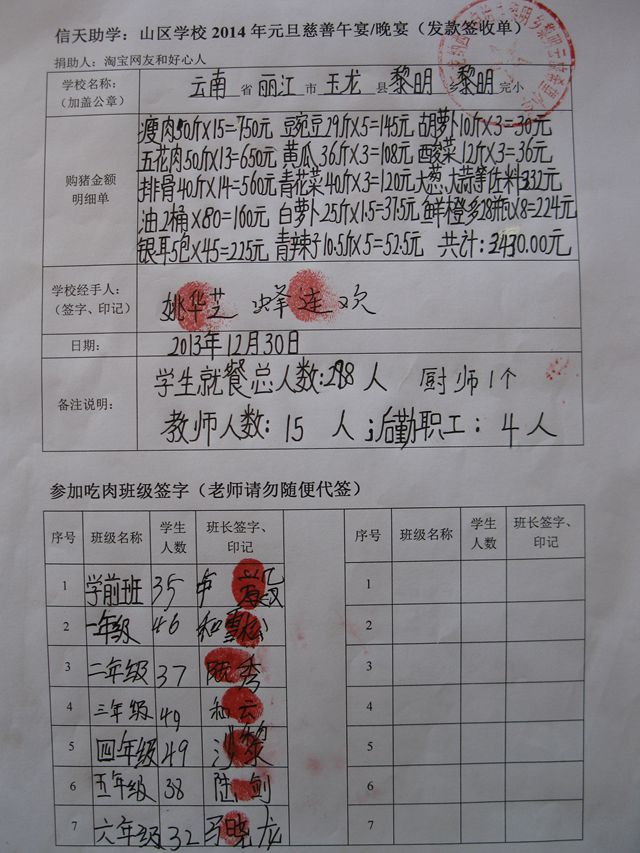 信天助学：山区学校 2014 年元旦慈善午宴/晚宴（发款签收单）
捐助人：淘宝网友和好心人
学校名称：
（加盖公章）
云南 省 丽江 市 玉龙 县 黎明 乡 黎明 完小
购猪金额
明细单
瘦肉50斤X15=750元 豌豆29斤X5=145元 胡萝卜10斤X3=30元
五花肉50斤X13=650元 黄瓜36斤X3=108元 酸菜12斤X3=36元
排骨40斤X14=560元 青花菜40斤X3=120元 大葱、大蒜等佐料332元
油2桶X80=160元 白萝卜25斤X1.5=37.5元 鲜橙多28瓶X8=224元
银耳5包X45=225元 青辣子10.5斤X5=52.5元 共计：3430.00元
学校经手人：
（签字、印记）
姚华芝 蜂连欢
日期：
2013年12月30日
备注说明：
学生就餐总人数：288人 厨师1个
教师人数：15 人；后勤职工：4人
参加吃肉班级签字（老师请勿随便代签）
序号 班级名称 学生人数 班长签字、印记 序号 班级名称 学生人数 班长签字、印记
1 学前班 35 1
2 一年级 46 和雪松 2
3 二年级 37 陆秀 3
4 三年级 49 和云 4
5 四年级 49 沙黎 5
6 五年级 38 陆剑 6
7 六年级 32 马晓龙 7